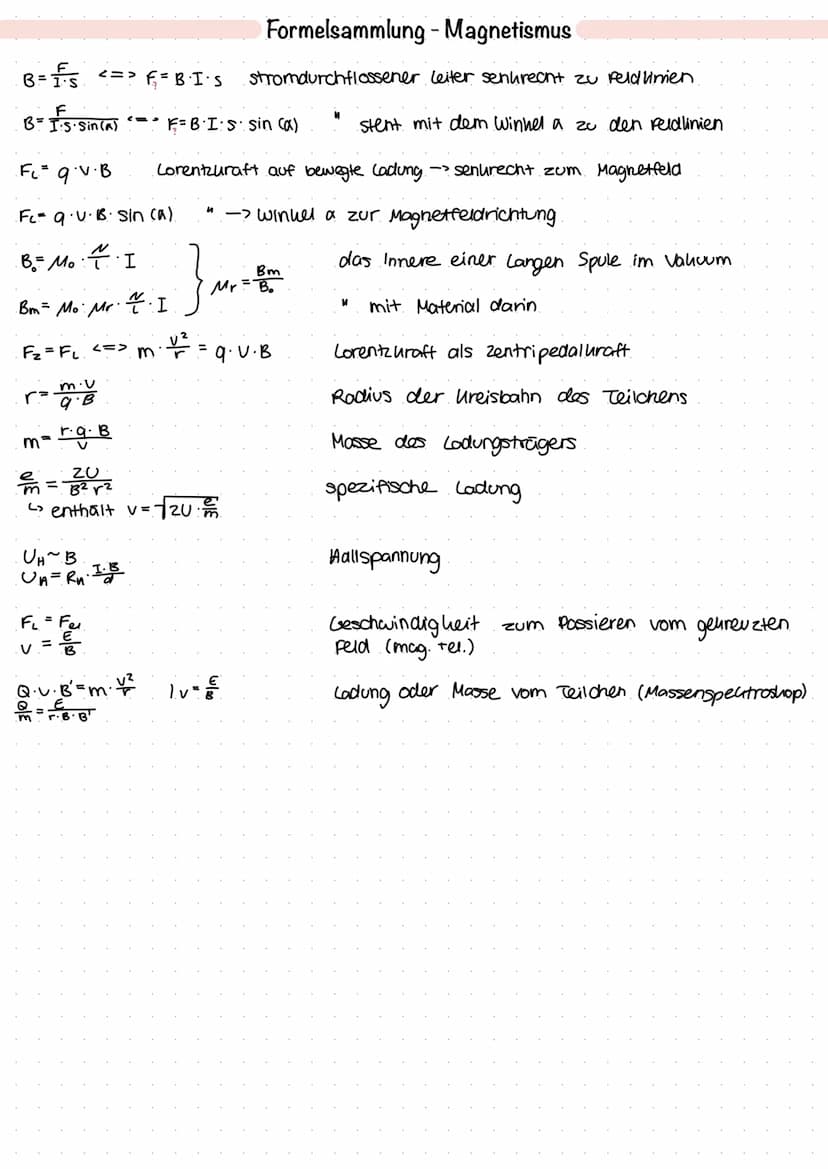 Formelsammlung - Magnetismus
B = F/(I·s) <=> F = B·I·s stromdurchflossener Leiter senkrecht zu Feldlinien
B = F/(I·s·sin(α)) <=> F = B·I·s·sin(α) " steht mit dem Winkel α zu den Feldlinien
F_L = q·v·B Lorentzkraft auf bewegte Ladung -> senkrecht zum Magnetfeld
F_L = q·v·B·sin(α) " -> Winkel α zur Magnetfeldrichtung
B_0 = μ_0·N/l·I das Innere einer langen Spule im Vakuum
} μ_r = B_m/B_0
B_m = μ_0·μ_r·N/l·I " mit Material darin
F_Z = F_L <=> m·v²/r = q·v·B Lorentzkraft als Zentripedalkraft
r = (m·v)/(q·B) Radius der Kreisbahn des Teilchens
m = (r·q·B)/v Masse des Ladungsträgers
e/m = 2U/(B² r²) spezifische Ladung
↳ enthält v = √(2U·e/m)
U_H ~ B Hallspannung
U_H = R_H·(I·B)/d
F_L = F_el Geschwindigkeit zum Passieren vom gekreuzten
v = E/B Feld (mag. + el.)
Q·v·B' = m·v²/r | v = E/B Ladung oder Masse vom Teilchen (Massenspektroskop)
Q/m = E/(r·B·B')